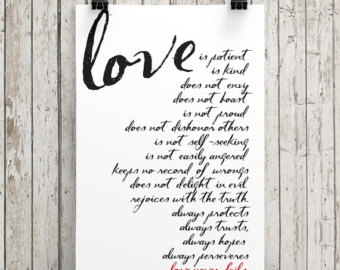 love is patient
is kind
does not envy
does not boast
is not proud
does not dishonor others
is not self-seeking
is not easily angered
keeps no record of wrongs
does not delight in evil
rejoices with the truth.
always protects
always trusts,
always hopes
always perseveres
love never fails